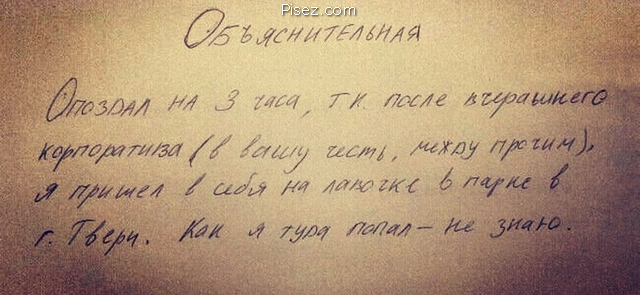 Pisez.com
Объяснительная
Опоздал на 3 часа, т.к. после вчерашнего
корпоратива (в вашу честь, между прочим),
я пришел в себя на лавочке в парке в
г. Твери. Как я туда попал — не знаю.